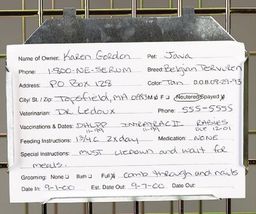 Name of Owner: Karen Gordon Pet: Java
Phone: 1-800-NE-SERUM Breed: Belgian Tervuren
Address: PO Box 128 Color: Tan D.O.B. 08-23-93
City / St. / Zip: Topsfield, MA 01983 M F Neutered Spayed
Veterinarian: Dr. Ledoux Phone: 555-5555
Vaccinations & Dates: DHLPP 11-99 INTRATRAC II 11-99 RABIES DUE 12-01
Feeding Instructions: 1 3/4 C 2x day Medication: NONE
Special Instructions: must liedown and wait for
meals.
Grooming: None Bath Full comb through and nails
Date In: 9-1-00 Est. Date Out: 9-7-00 Date Out: